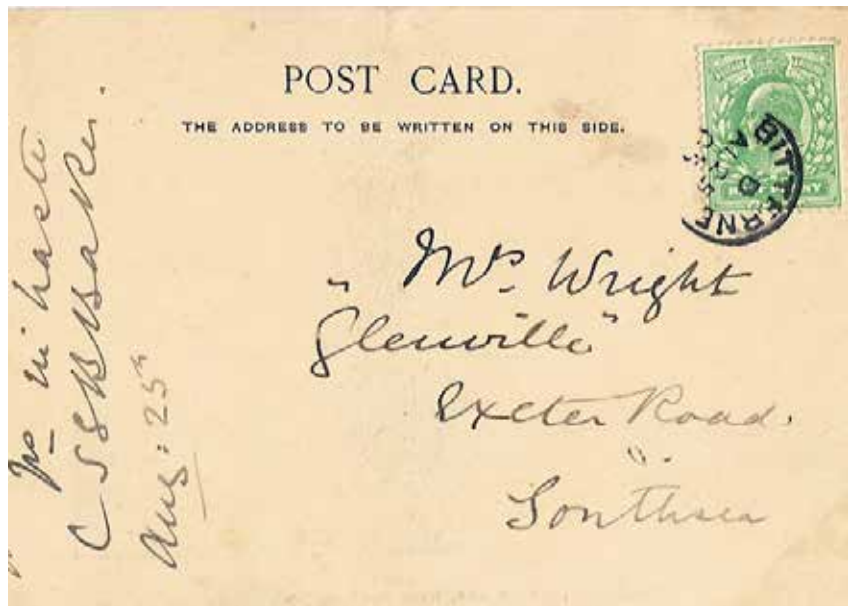 POST CARD.
THE ADDRESS TO BE WRITTEN ON THIS SIDE.
BITTERNE
Mrs. Wright
"Glenville"
Exeter Road.
Southsea
yrs in haste
Aug: 25th